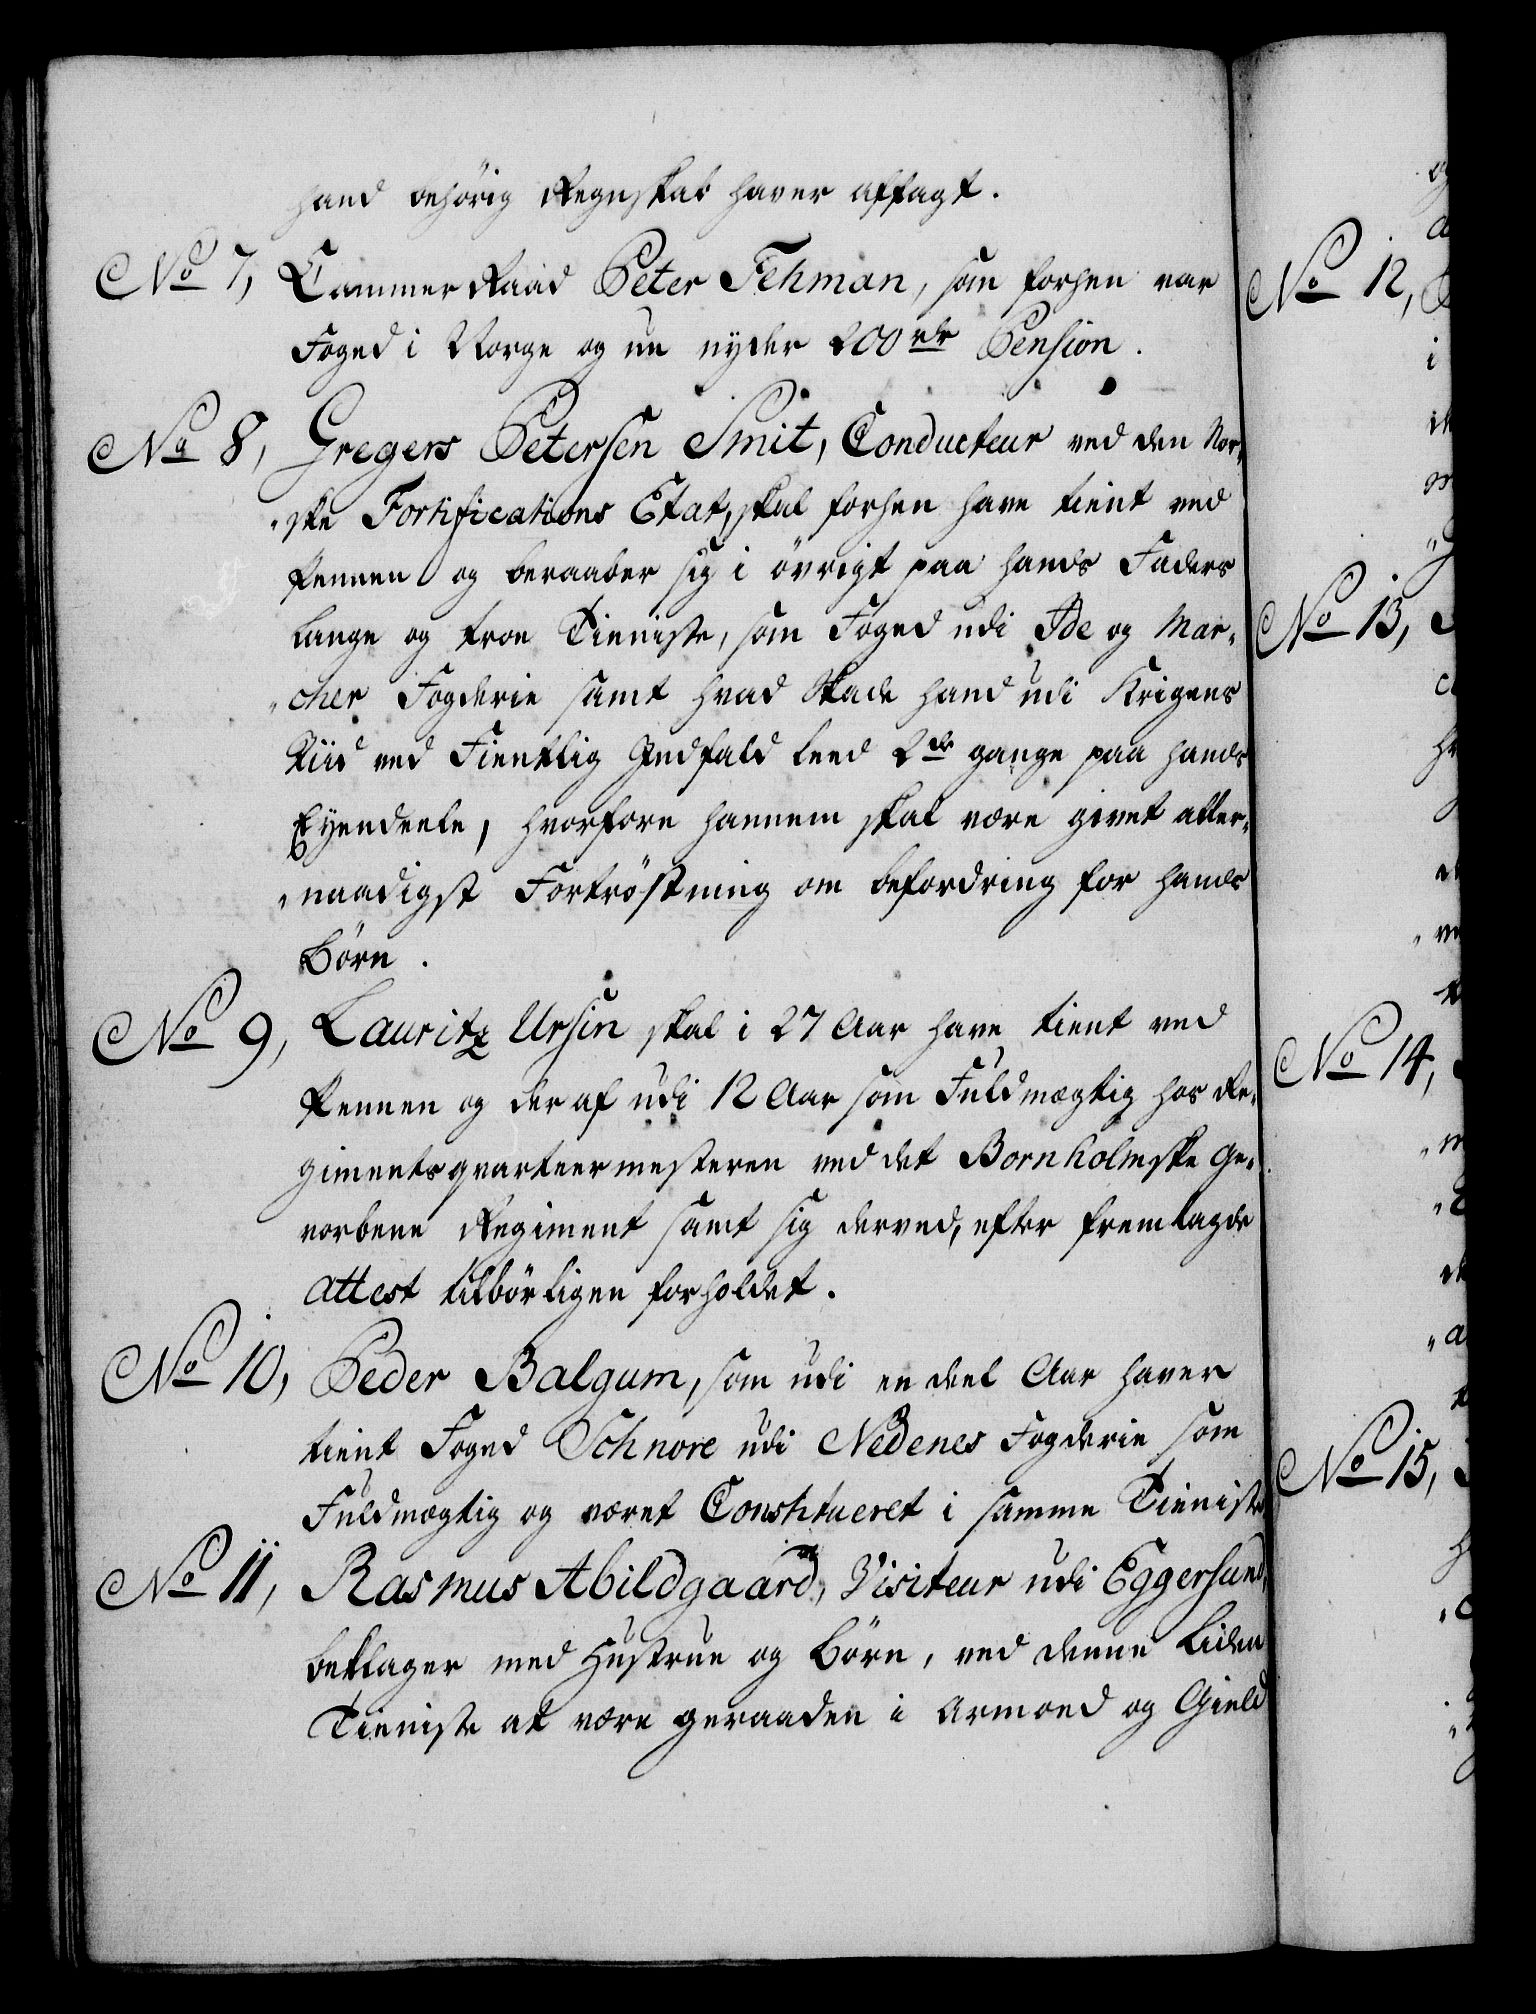 hand behörig Regnskab haver afsagt.
No 7, Cammer Raad Peter Fehman, som forhen var
Foged i Norge og nu nyder 200 rdr Pension.
No 8, Gregers Petersen Smit, Conducteur ved den Nor-
ske Fortifications Etat, skal forhen have tient ved
Pennen og beraaber sig i övrigt paa hands Faders
lange og troe Tieniste, som Foged udi Ide og Mar-
cher Fogderie samt hvad Skade hand udi Krigens
Tiid ved Fientlig Indfald leed 2de gange paa hands
Eyendeele, hvorfore hannem skal være givet aller-
naadigst Fortröstning om befordring for hands
Börn.
No 9, Lauritz Ursin skal i 27 Aar have tient ved
Pennen og deraf udi 12 Aar som Fuldmægtig hos Re-
gimentsqvarteermesteren ved det Bornholmske ge-
vorbene Regiment samt sig derved, efter fremlagde
attest tilbörligen forholdet.
No 10, Peder Balgum, som udi en deel Aar haver
tient Foged Schnore udi Nedenes Fogderie som
Fuldmægtig og været Constitueret i samme Tieniste
No 11, Rasmus Abildgaard, Visiteur udi Eggersund,
beklager med Hustrue og Börn, ved denne liden
Tieniste at være geraaden i Armoed og Gield
No 12,
No 13,
No 14,
No 15,